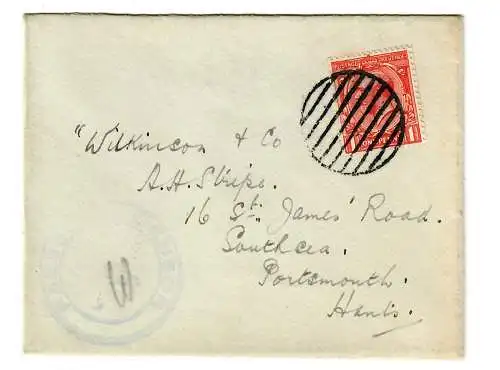 "Wilkinson & Co
A.H. Stripe.
16 St. James' Road.
Southsea.
Portsmouth.
Hants.
W
1 1